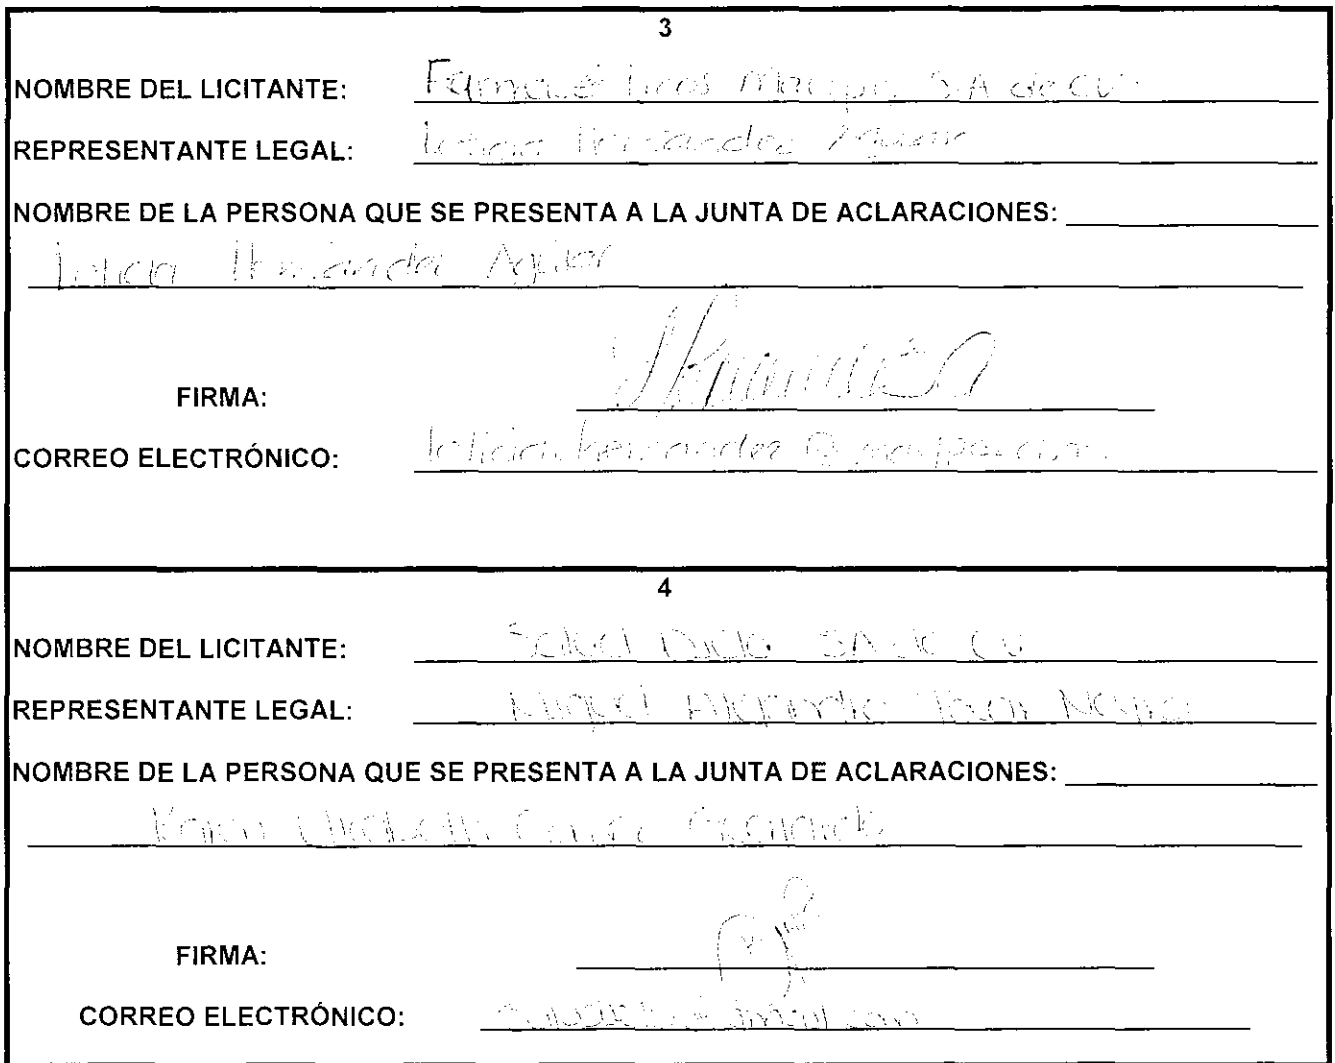 3
NOMBRE DEL LICITANTE: Farmacéuticos Maypo S.A de CV
REPRESENTANTE LEGAL: Leticia Hernández Aguilar
NOMBRE DE LA PERSONA QUE SE PRESENTA A LA JUNTA DE ACLARACIONES:
Leticia Hernández Aguilar
FIRMA:
CORREO ELECTRÓNICO: leticia.hernandez@maypo.com
4
NOMBRE DEL LICITANTE: SA de CV
REPRESENTANTE LEGAL: Miguel Alejandro
NOMBRE DE LA PERSONA QUE SE PRESENTA A LA JUNTA DE ACLARACIONES:
Karen Elizabeth
FIRMA:
CORREO ELECTRÓNICO: